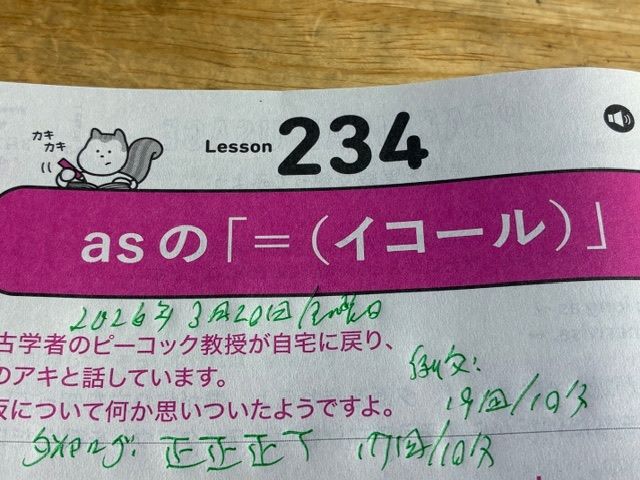 カキ
カキ
Lesson 234
asの「=(イコール)」
2026年3月20日/金曜日
古学者のピーコック教授が自宅に戻り、
のアキと話しています。
反について何か思いついたようですよ。
19回/10分
正正正丅 17回/10分